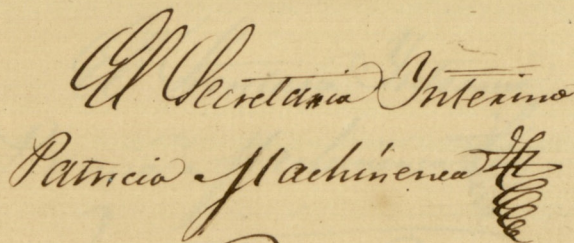 El Secretario Ynterino
Patricio Machinena